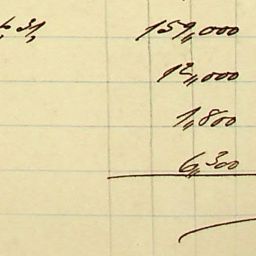 159,000
12,000
1,800
6,300